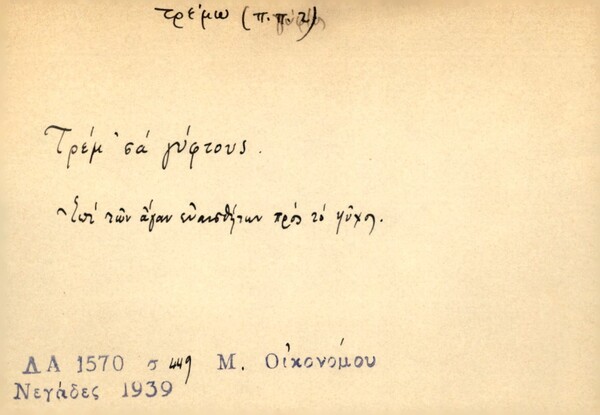 τρέμω (π.π.τ)
γύφτος
Τρέμ 'σά γύφτους.
Ἐπί τῶν ἄγαν εὐαισθήτων πρός τό ψῦχος.
ΛΑ 1570 σ 449 Μ. Οἰκονόμου
Νεγάδες 1939